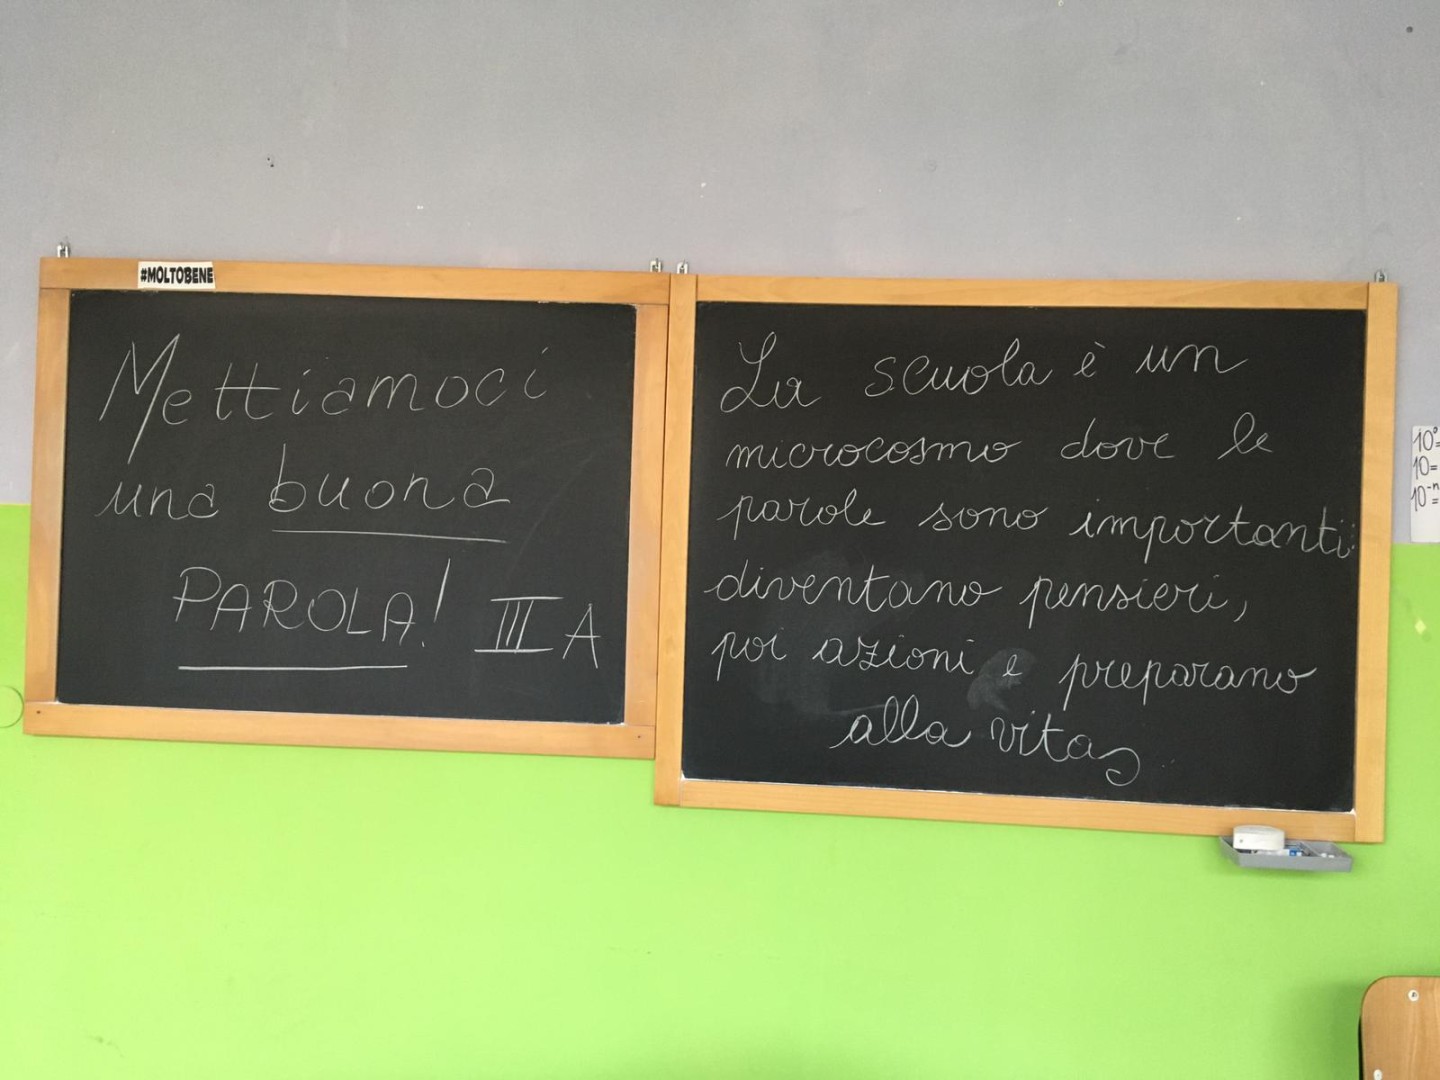 #MOLTOBENE
Mettiamoci
una buona
PAROLA! III A
La scuola è un
microcosmo dove le
parole sono importanti:
diventano pensieri,
poi azioni e preparano
alla vita
10⁰=
10=
10⁻ⁿ=